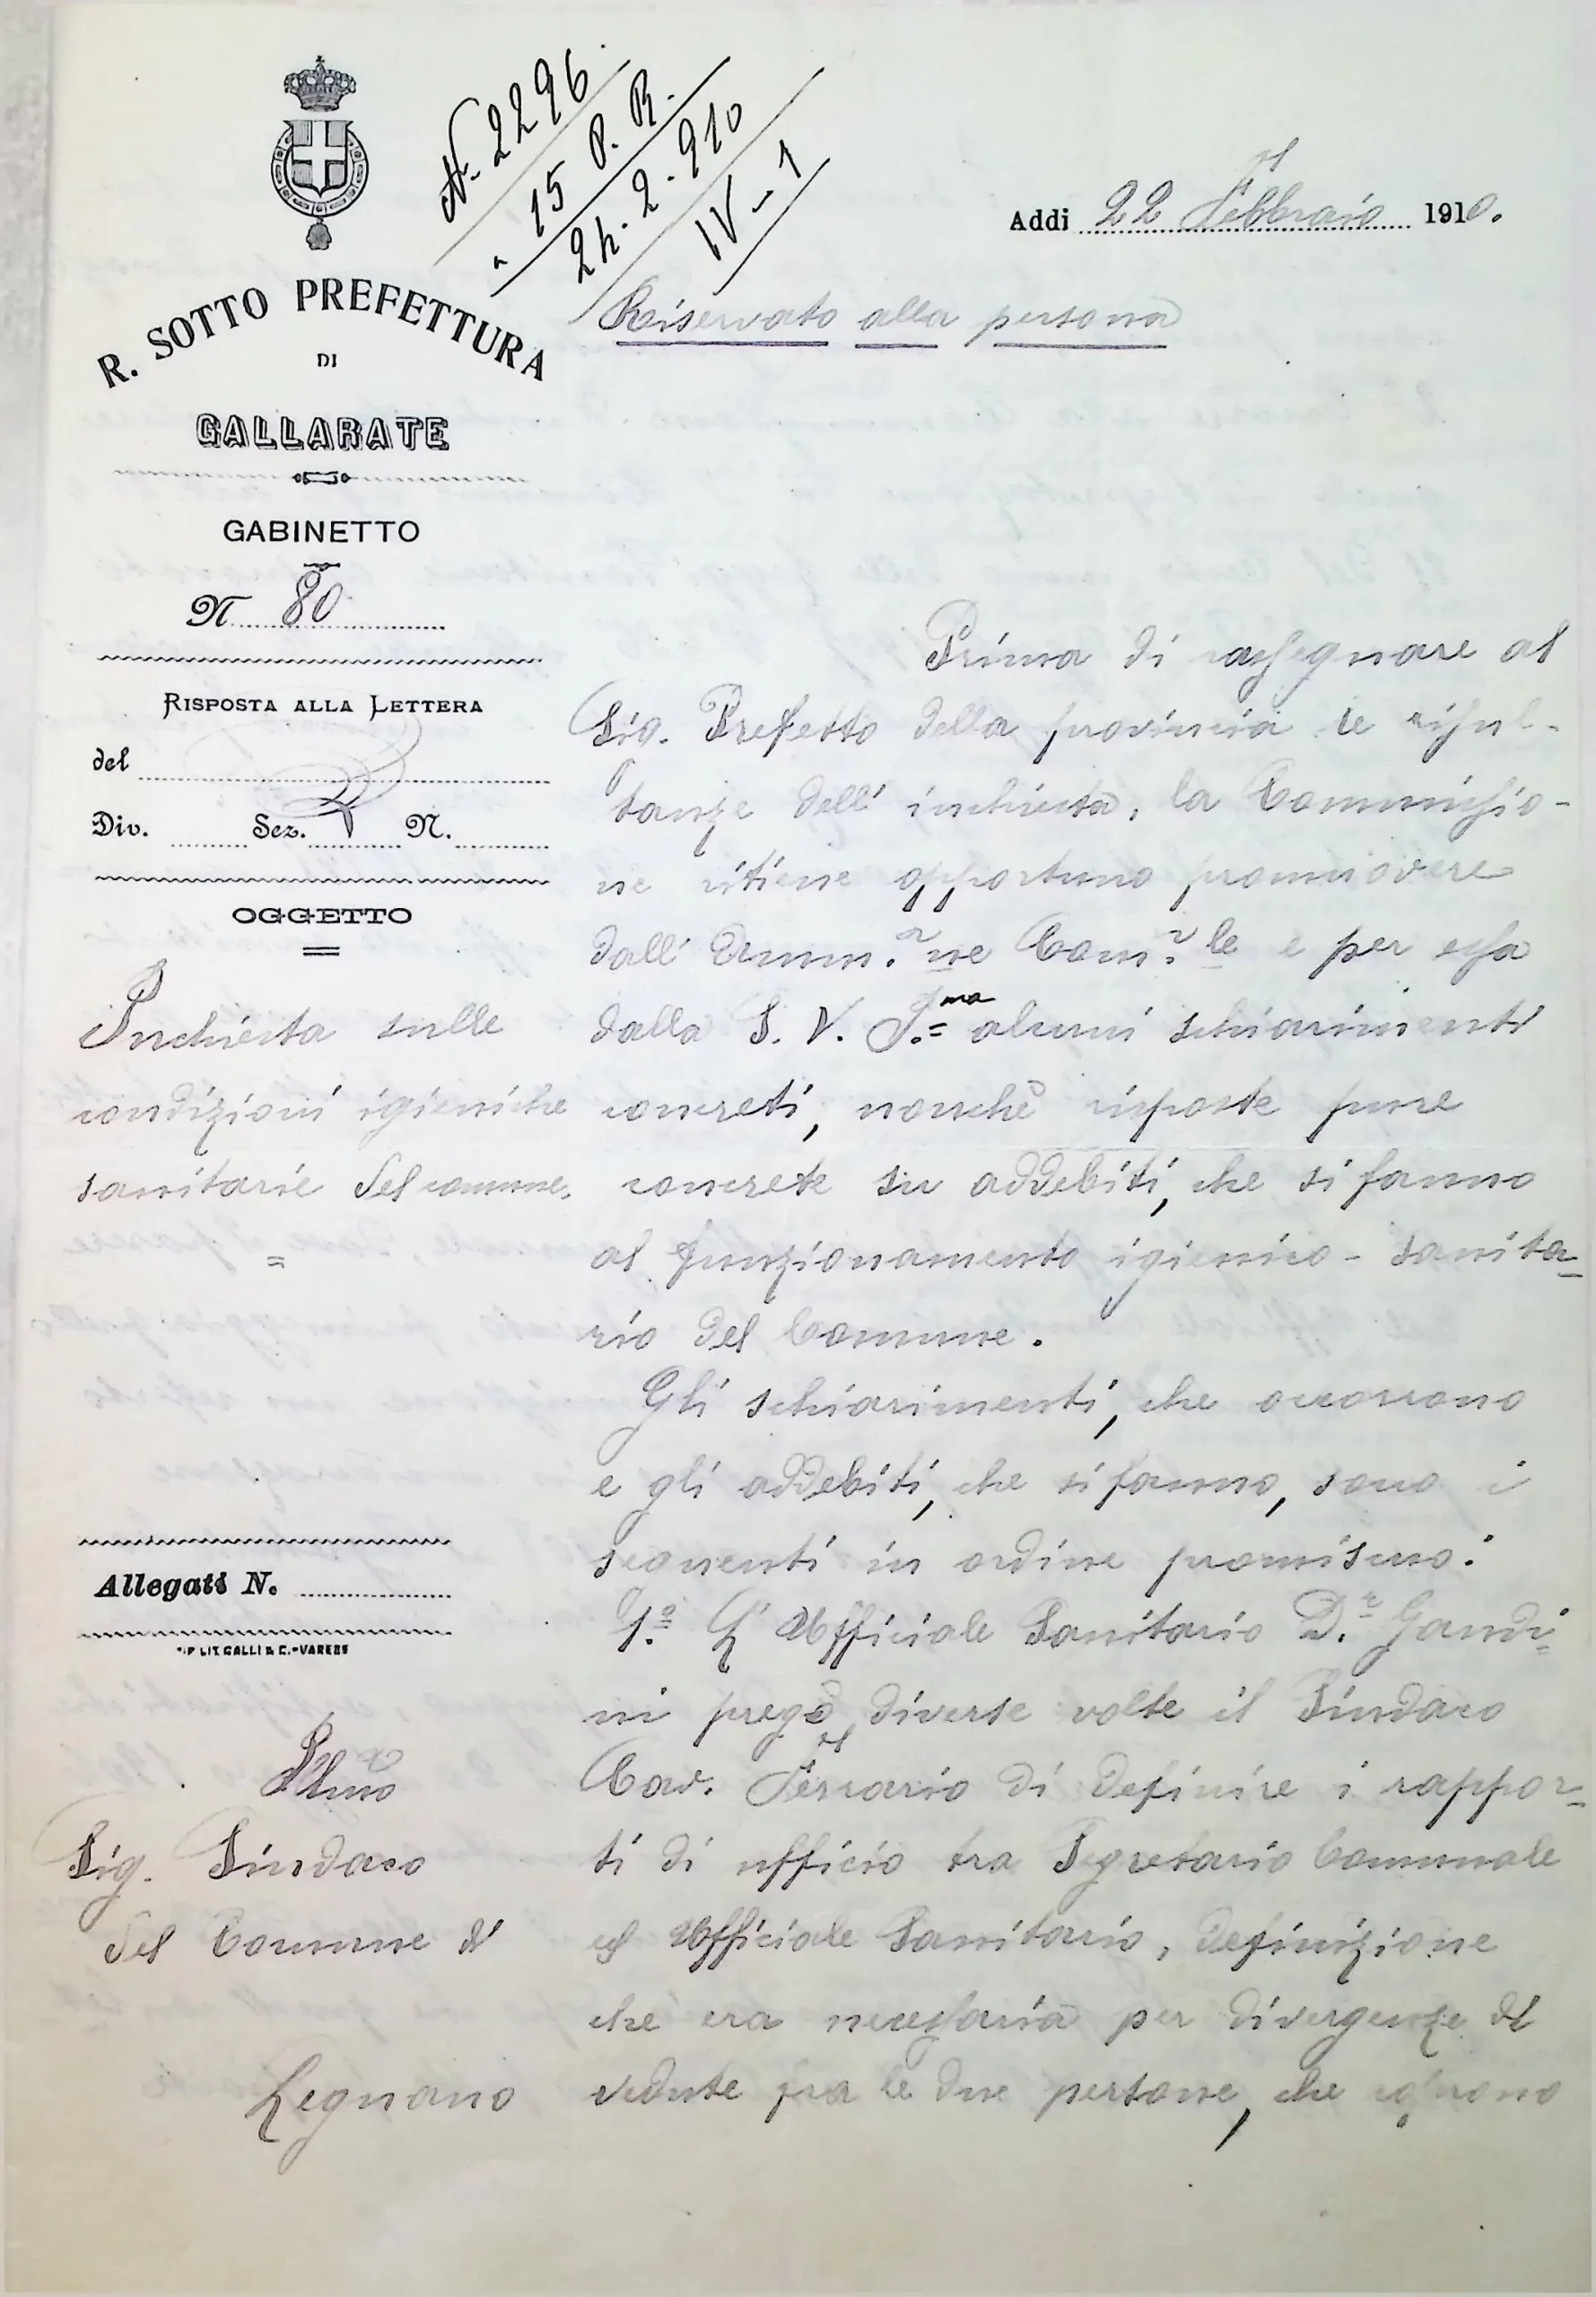 N. 2296
15 P. R.
24. 2. 910
IV - 1
Addi 22 Febbraio 1910.
R. SOTTO PREFETTURA
DI
GALLARATE
Riservato alla persona
GABINETTO
N 80
RISPOSTA ALLA LETTERA
del
Div. Sez. N.
OGGETTO
Inchiesta sulle
condizioni igieniche
sanitarie del comune.
=
Allegati N.
TIP LIT. GALLI & C.-VARESE
Ill.mo
Sig. Sindaco
del Comune di
Legnano
Prima di rassegnare al
Sig. Prefetto della provincia le risul-
tanze dell' inchiesta, la Commissio-
ne ritiene opportuno promuovere
dall' Amm.ne Com.le e per essa
dalla S. V. I.ma alcuni schiarimenti
concreti, nonchè risposte pure
concrete su addebiti, che si fanno
al funzionamento igienico - sanita-
rio del Comune.
Gli schiarimenti, che occorrono
e gli addebiti, che si fanno, sono i
seguenti in ordine promiscuo:
1.º L' Ufficiale Sanitario D.r Gandi-
ni pregò diverse volte il Sindaco
Cav. Ferrario di definire i rappor-
ti di ufficio tra Segretario Comunale
ed Ufficiale Sanitario, definizione
che era necessaria per divergenze di
vedute fra le due persone, che